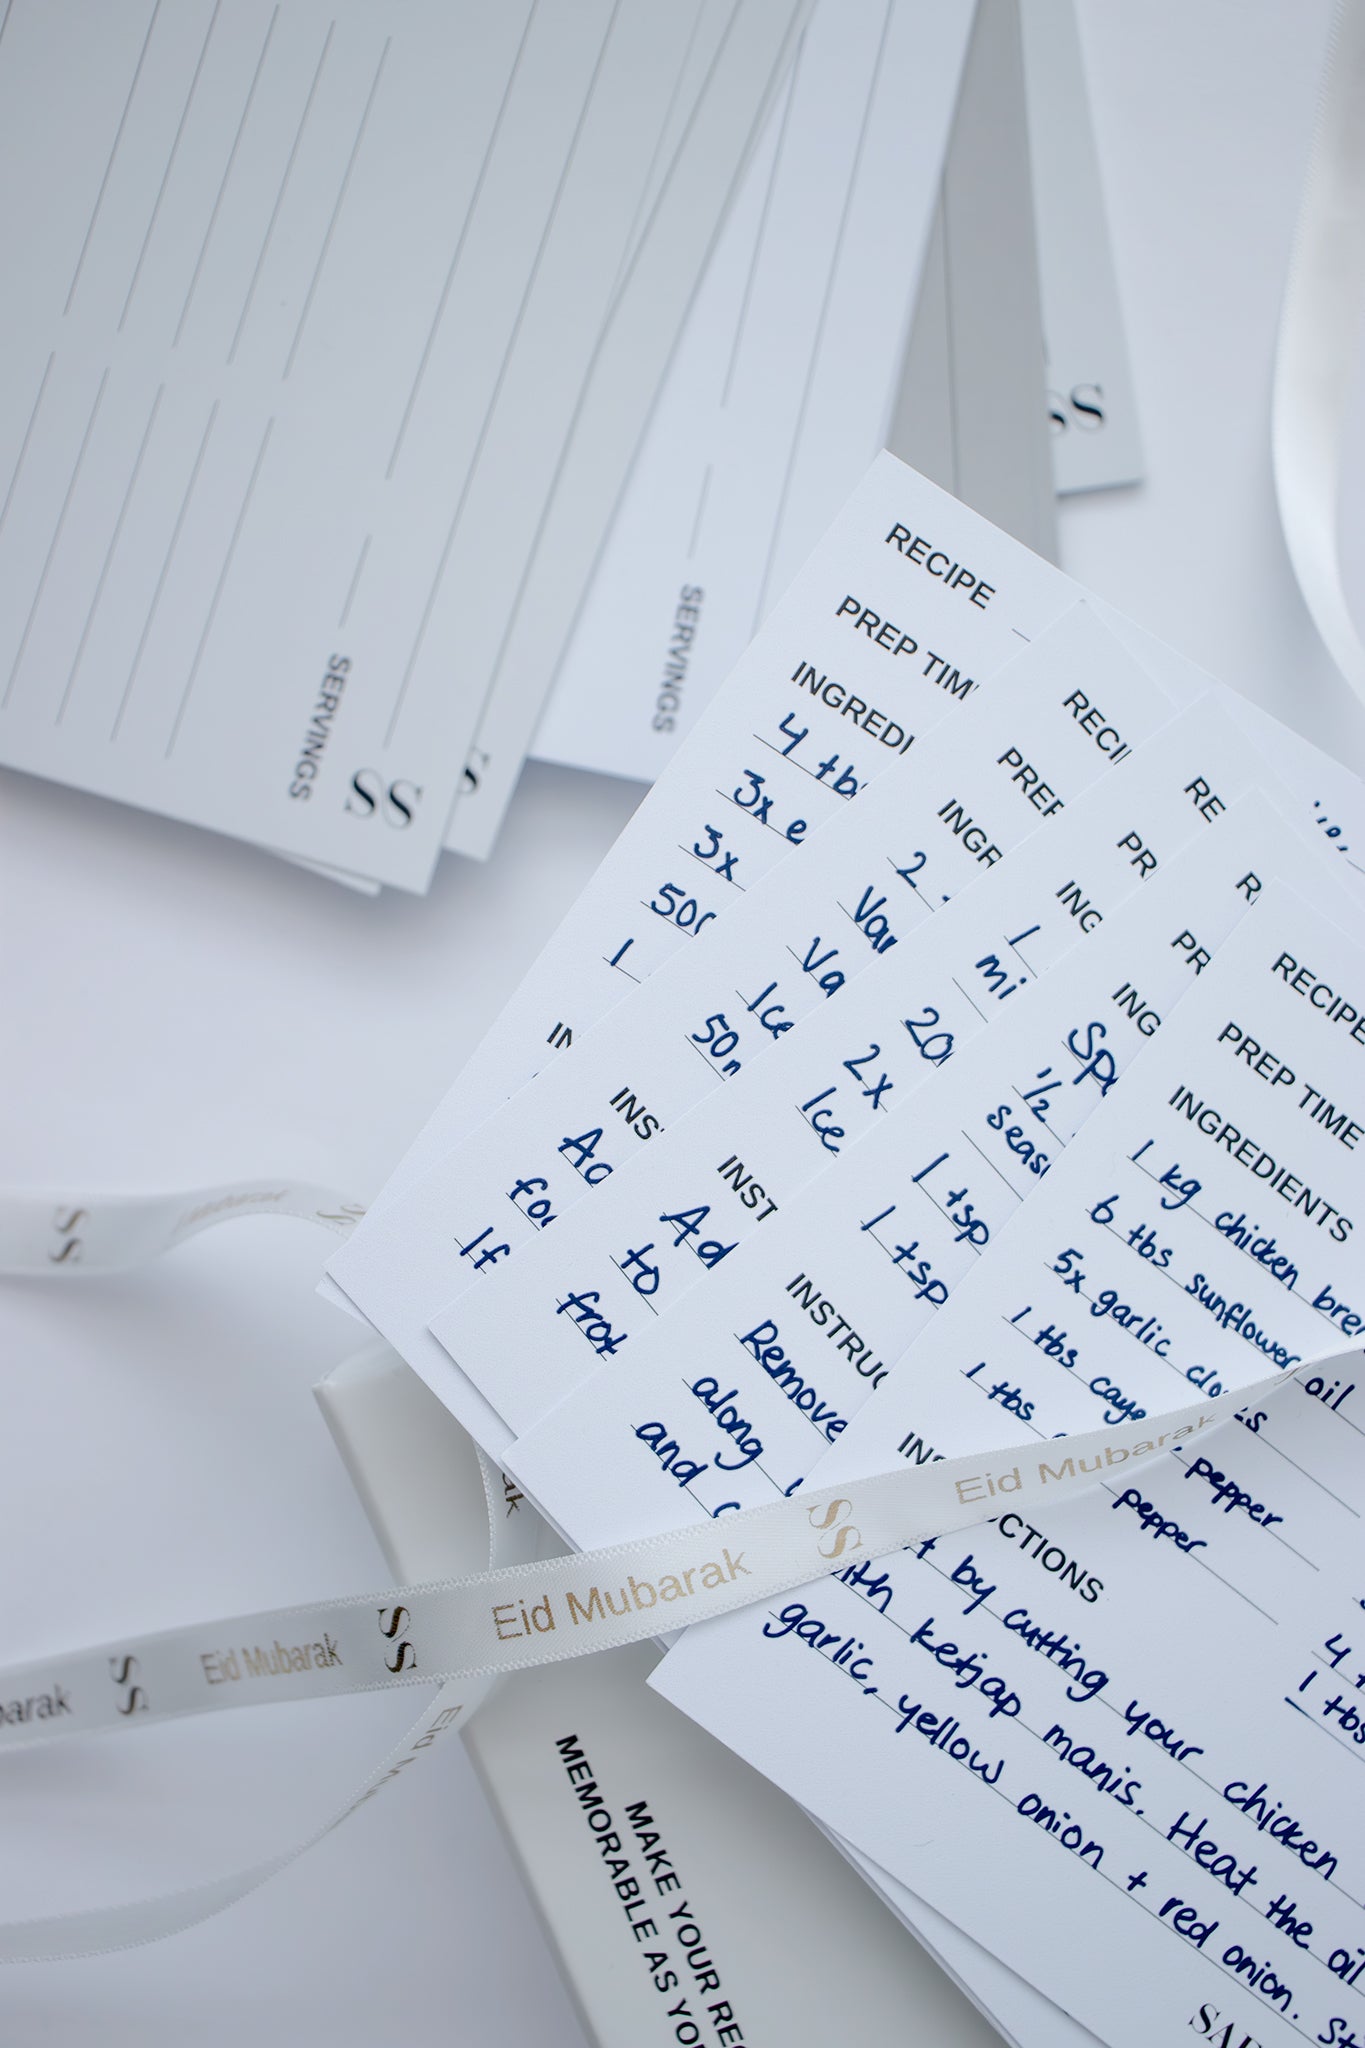 SERVINGS
SS
SERVINGS
SS
RECIPE
PREP TIM
INGREDI
4 tb
3x e
3x
500
1
IN
RECI
PREP
INGR
2
Van
Va
Ice
50m
INS
Ad
for
If
RE
PR
ING
1
mi
20
2x
Ice
INST
Ad
to
frot
R
PR
ING
Spe
1/2
seas
1 tsp
1 tsp
INSTRUC
Remove
along
and
RECIPE
PREP TIME
INGREDIENTS
1 kg chicken brea
6 tbs sunflower oil
5x garlic cloves
1 tbs caye pepper
1 tbs pepper
4
1 tbs
INS CTIONS
by cutting your chicken
with ketjap manis. Heat the oil
garlic, yellow onion + red onion. St
SAF
SS
Eid Mubarak
SS
barak
SS
Eid Mubarak
SS
Eid Mubarak
SS
Eid Mubarak
ak
Eid M
MAKE YOUR REC
MEMORABLE AS YO